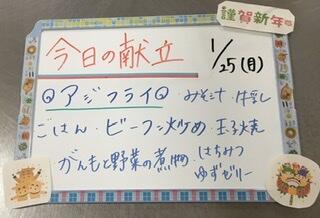 謹賀新年
今日の献立 1/25(月)
◎アジフライ◎・みそ汁・牛乳
ごはん・ビーフン炒め・玉子焼
がんもと野菜の煮物・はちみつ
ゆずゼリー